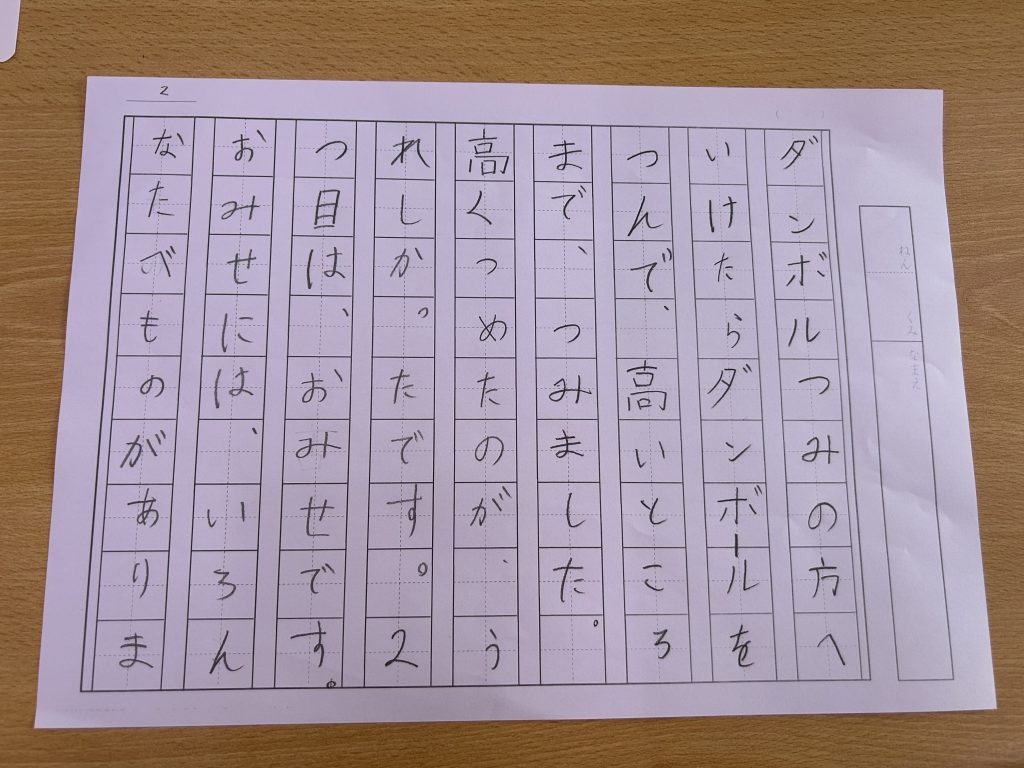 2
ねん くみ なまえ
ダンボルつみの方へ
いけたらダンボールを
つんで、高いところ
まで、つみました。
高くつめたのが、う
れしかったです。2
つ目は、おみせです。
おみせには、いろん
なたべものがありま